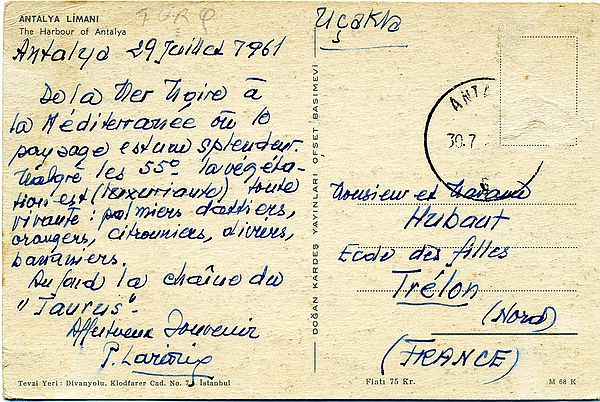 ANTALYA LİMANI
The Harbour of Antalya
TURQ
Antalya 29 Juillet 1961
De la Mer Noire à
la Méditerranée où le
paysage est une splendeur.
Malgré les 55° la végéta-
tion est (luxuriante) toute
vivante: palmiers dattiers,
orangers, citronniers, oliviers,
bananiers.
Au fond la chaîne du
"Taurus".
Affectueux Souvenir
P.
Tevzi Yeri : Divanyolu. Klodfarer Cad. No. 7 İstanbul
DOĞAN KARDEŞ YAYINLARI OFSET BASIMEVİ
Uçakla
ANTA
30.7
Monsieur et Madame
Hubaut
Ecole des filles
Trélon
(Nord)
(FRANCE)
Fiatı 75 Kr.
M 68 K